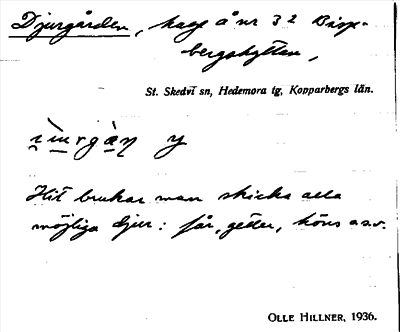 Djurgården, hage å nr 3² Bisp-
bergshyttan,
St. Skedvi sn, Hedemora tg, Kopparbergs län.
y
Hit brukar man skicka alla
möjliga djur: får, getter, höns a.s.v.
OLLE HILLNER, 1936.